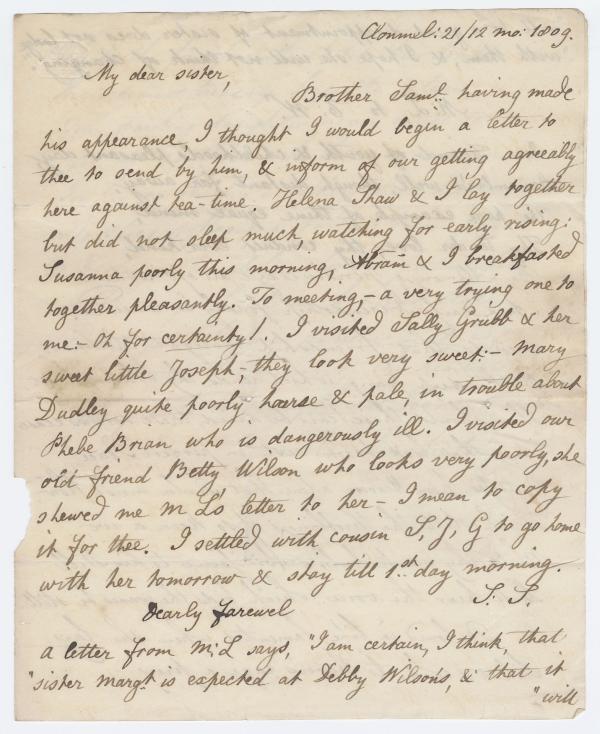 Clonmel: 21/12 mo: 1809.
My dear sister,
Brother Saml. having made
his appearance, I thought I would begin a letter to
thee to send by him, & inform of our getting agreeably
here against tea-time. Helena Shaw & I lay together
but did not sleep much, watching for early rising:
Susanna poorly this morning, Abram & I breakfasted
together pleasantly. To meeting,- a very trying one to
me:- Oh for certainty!. I visited Sally Grubb & her
sweet little Joseph,- they look very sweet:- Mary
Dudley quite poorly hoarse & pale, in trouble about
Phebe Brian who is dangerously ill. I visited our
old friend Betty Wilson who looks very poorly, she
shewed me M L's letter to her - I mean to copy
it for thee. I settled with cousin S, J, G to go home
with her tomorrow & stay till 1st day morning.
Dearly farewel
S. S.
a letter from M: L says, "I am certain, I think, that
"sister Margt. is expected at Debby Wilson's, & that it
"will